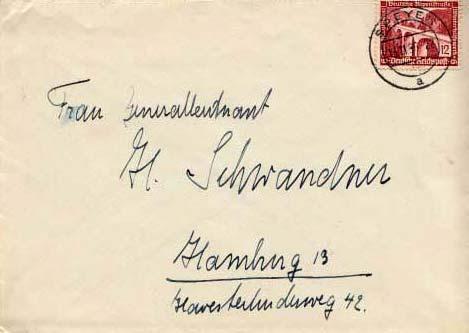 SPEYER
Deutsche Alpenstraße
12
Deutsche Reichspost
a
Frau Generalleutnant
H. Schwandner
Hamburg 13
Harvesterhuderweg 42.